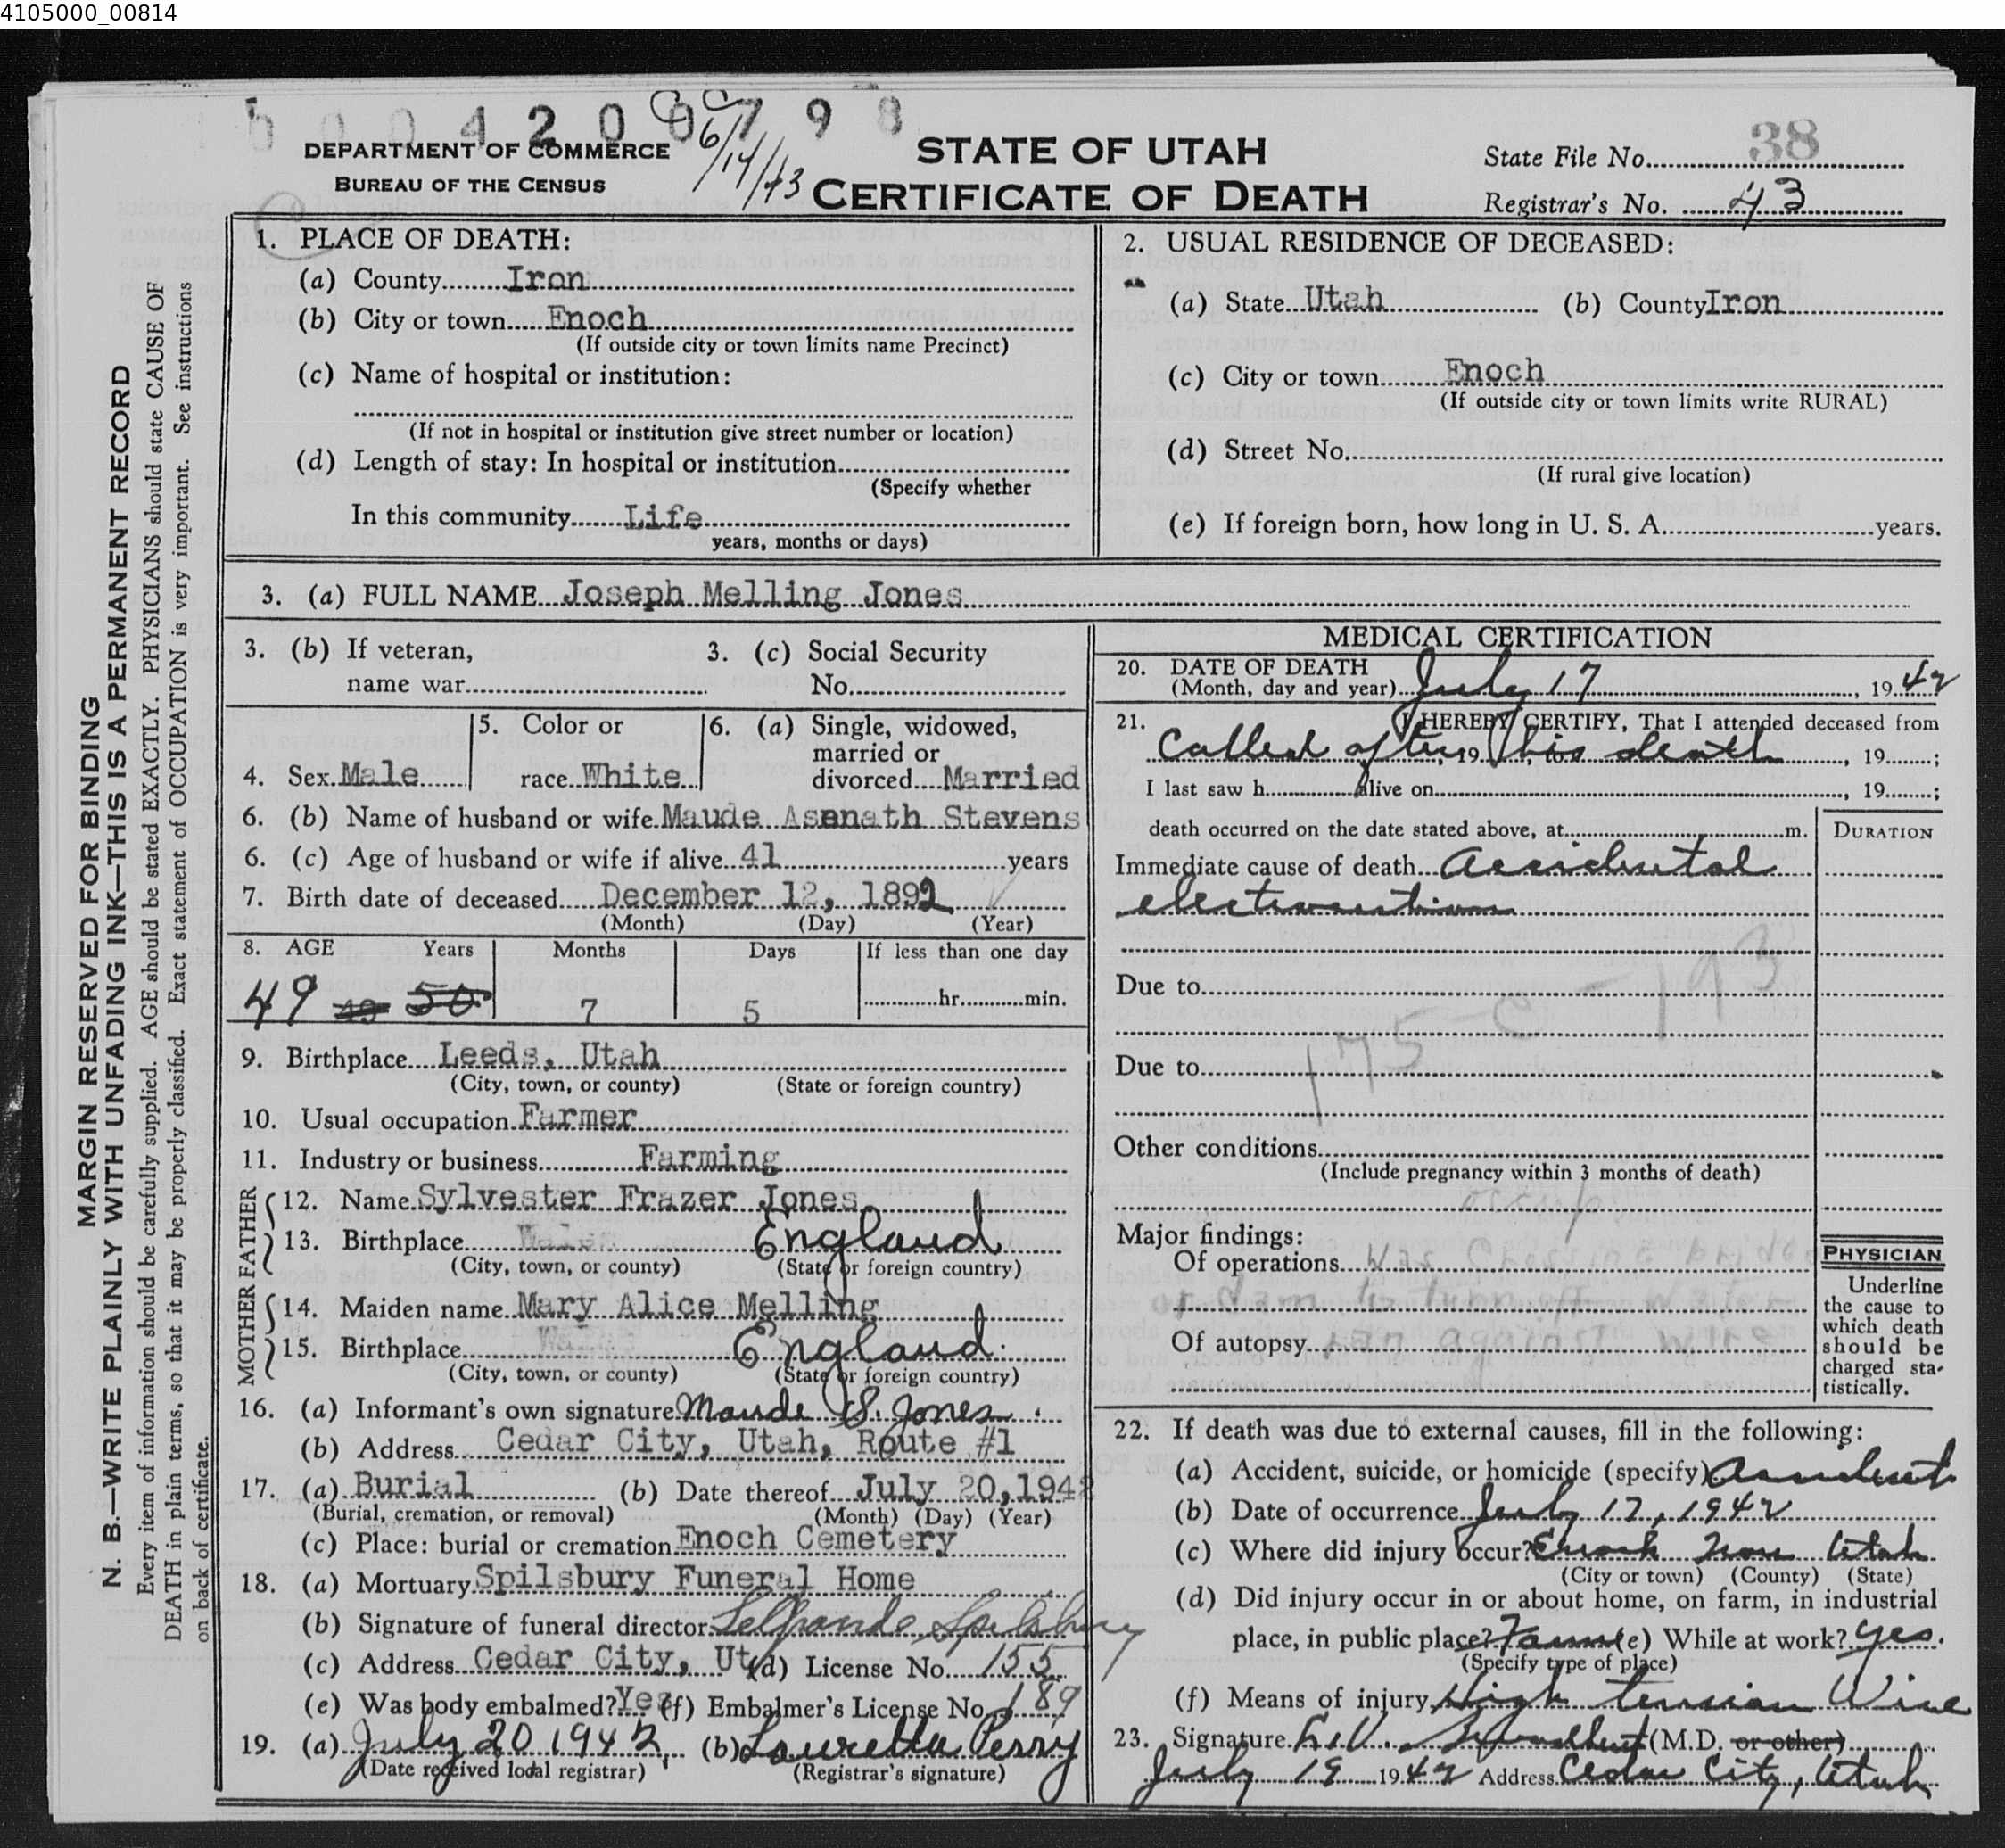 4105000_00814
4 2 0 0 7 9 8
6/14/43
DEPARTMENT OF COMMERCE
BUREAU OF THE CENSUS
STATE OF UTAH
CERTIFICATE OF DEATH
State File No. 38
Registrar's No. 43
MARGIN RESERVED FOR BINDING
N. B.—WRITE PLAINLY WITH UNFADING INK—THIS IS A PERMANENT RECORD
Every item of information should be carefully supplied. AGE should be stated EXACTLY. PHYSICIANS should state CAUSE OF
DEATH in plain terms, so that it may be properly classified. Exact statement of OCCUPATION is very important. See instructions
on back of certificate.
1. PLACE OF DEATH:
(a) County Iron
(b) City or town Enoch
(If outside city or town limits name Precinct)
(c) Name of hospital or institution:
(If not in hospital or institution give street number or location)
(d) Length of stay: In hospital or institution
(Specify whether
In this community Life
years, months or days)
2. USUAL RESIDENCE OF DECEASED:
(a) State Utah (b) County Iron
(c) City or town Enoch
(If outside city or town limits write RURAL)
(d) Street No.
(If rural give location)
(e) If foreign born, how long in U. S. A. years.
3. (a) FULL NAME Joseph Melling Jones
3. (b) If veteran,
name war
3. (c) Social Security
No.
4. Sex Male
5. Color or
race White
6. (a) Single, widowed,
married or
divorced Married
6. (b) Name of husband or wife Maude Asenath Stevens
6. (c) Age of husband or wife if alive 41 years
7. Birth date of deceased December 12, 1892
(Month) (Day) (Year)
8. AGE Years Months Days If less than one day
49 49 50 7 5 hr. min.
9. Birthplace Leeds, Utah
(City, town, or county) (State or foreign country)
10. Usual occupation Farmer
11. Industry or business Farming
FATHER
12. Name Sylvester Frazer Jones
13. Birthplace England
(City, town, or county) (State or foreign country)
MOTHER
14. Maiden name Mary Alice Melling
15. Birthplace England
(City, town, or county) (State or foreign country)
16. (a) Informant's own signature Maude S. Jones
(b) Address Cedar City, Utah, Route #1
17. (a) Burial (b) Date thereof July 20, 1942
(Burial, cremation, or removal) (Month) (Day) (Year)
(c) Place: burial or cremation Enoch Cemetery
18. (a) Mortuary Spilsbury Funeral Home
(b) Signature of funeral director LeGrande Spilsbury
(c) Address Cedar City, Ut (d) License No. 155
(e) Was body embalmed? Yes (f) Embalmer's License No. 189
19. (a) July 20 1942 (b) Lauretta Perry
(Date received local registrar) (Registrar's signature)
MEDICAL CERTIFICATION
20. DATE OF DEATH
(Month, day and year) July 17, 1942
21. I HEREBY CERTIFY, That I attended deceased from
Called after, 19 his to death, 19 ;
I last saw h alive on , 19 ;
death occurred on the date stated above, at m. DURATION
Immediate cause of death Accidental
electrocution
Due to
175-c-193
Due to
Other conditions
(Include pregnancy within 3 months of death)
Major findings:
Of operations
Of autopsy
PHYSICIAN
Underline
the cause to
which death
should be
charged sta-
tistically.
22. If death was due to external causes, fill in the following:
(a) Accident, suicide, or homicide (specify) Accident
(b) Date of occurrence July 17, 1942
(c) Where did injury occur? Enoch Iron Utah
(City or town) (County) (State)
(d) Did injury occur in or about home, on farm, in industrial
place, in public place? Farm (e) While at work? Yes.
(Specify type of place)
(f) Means of injury High tension Wire
23. Signature (M.D. or other)
July 19 1942 Address Cedar City, Utah